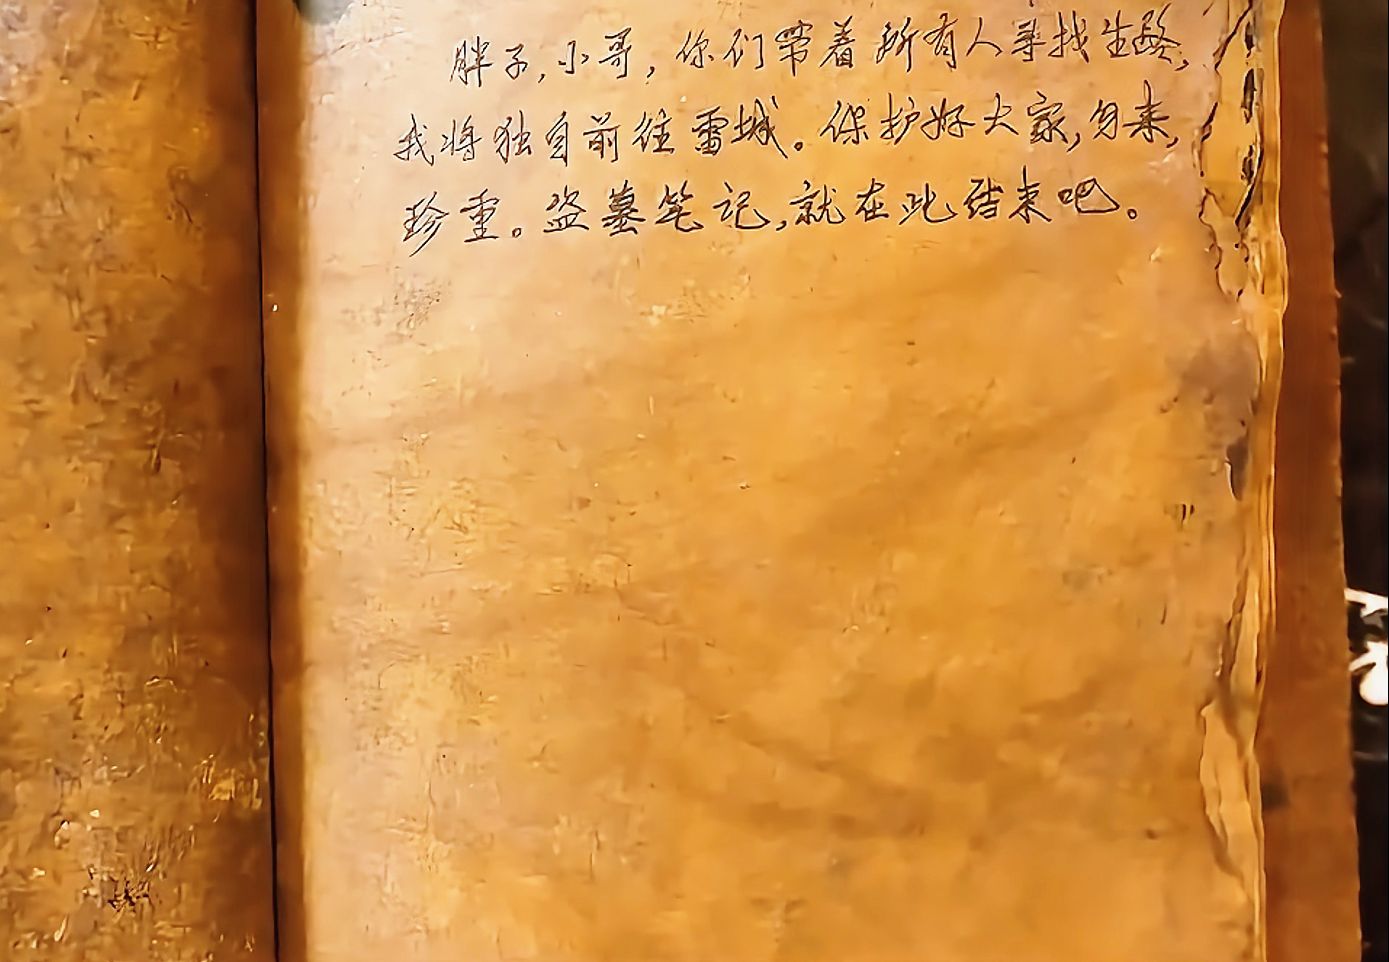 胖子,小哥,你们带着所有人寻找生路,
我将独自前往雷城。保护好大家,勿来,
珍重。盗墓笔记,就在此结束吧。